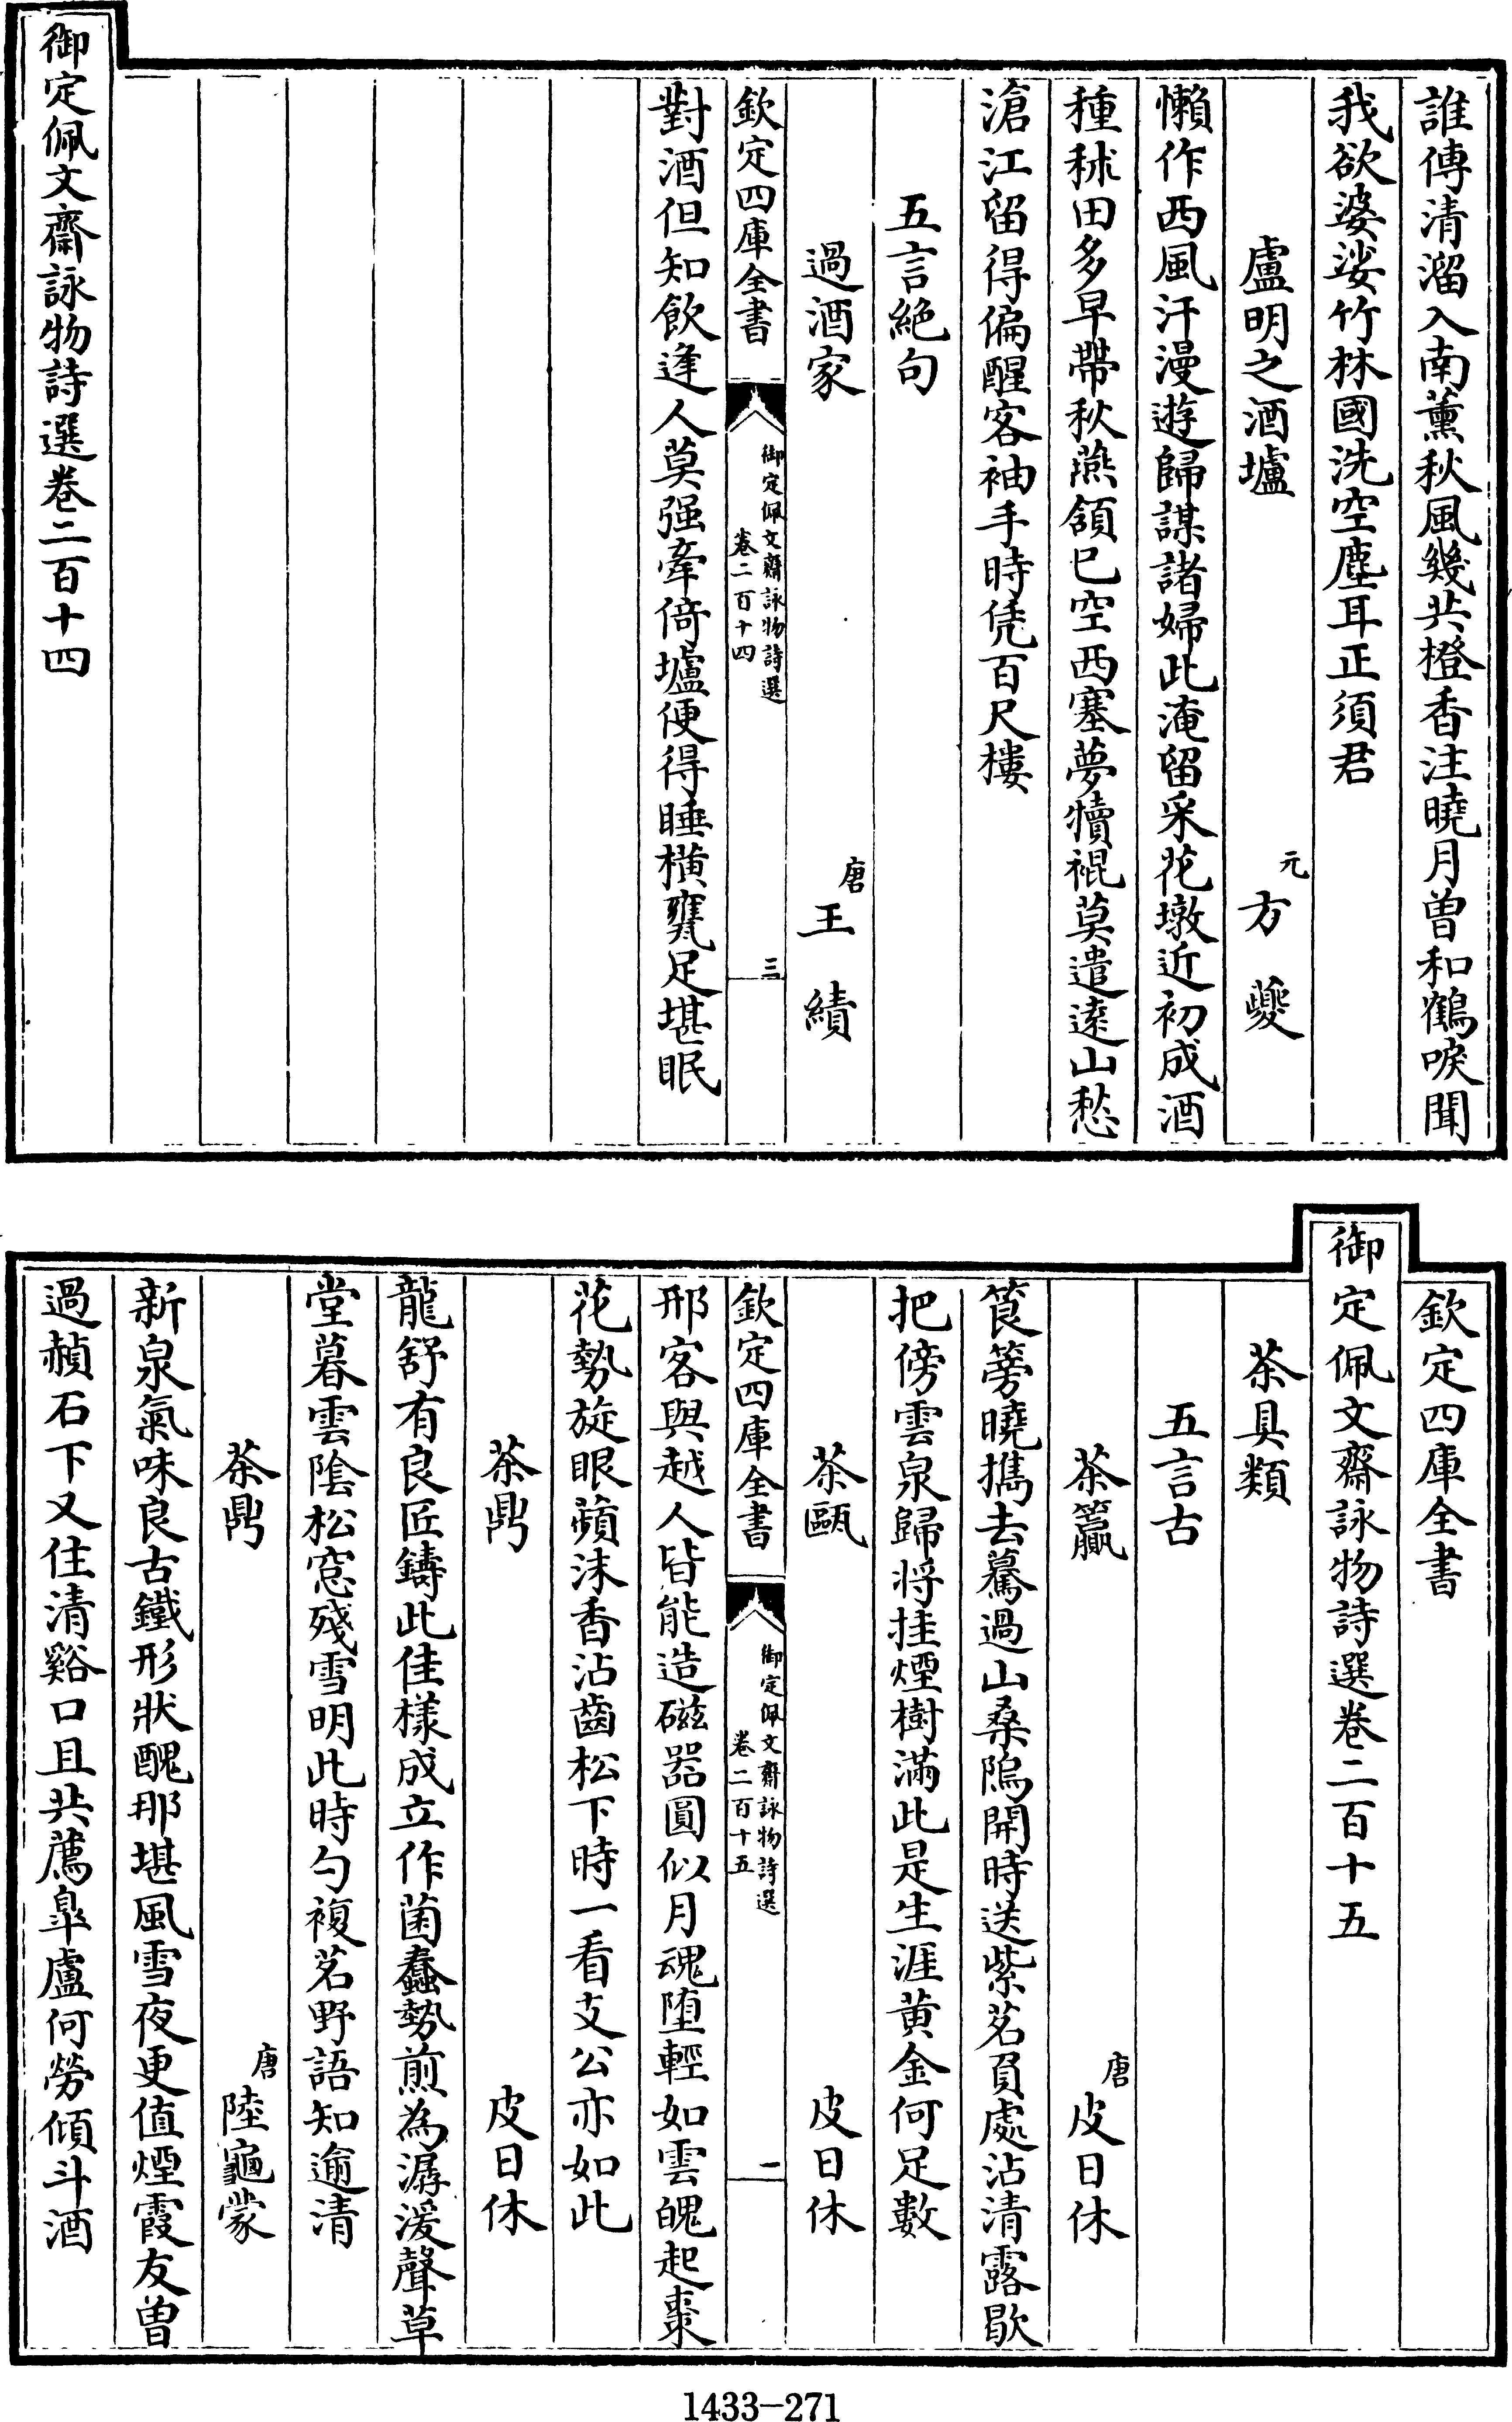 誰傳清溜入南薰秋風幾共橙香注曉月曽和鶴唳聞
我欲婆娑竹林國洗空塵耳正須君
盧明之酒壚
元
方夔
懶作西風汗漫遊歸謀諸婦此淹留采花墩近初成酒
種秫田多早帶秋燕頷已空西塞夢犢裩莫遣逺山愁
滄江留得偏醒客袖手時凭百尺樓
五言絶句
過酒家
唐
王績
欽定四庫全書
御定佩文齋詠物詩選
卷二百十四
三
對酒但知飲逢人莫强牽倚壚便得睡橫甕足堪眠
御定佩文齋詠物詩選卷二百十四
欽定四庫全書
御定佩文齋詠物詩選卷二百十五
茶具類
五言古
茶籯
唐
皮日休
筤篣曉攜去驀過山桑隖開時送紫茗負處沾清露歇
把傍雲泉歸将挂煙樹滿此是生涯黄金何足數
茶甌
皮日休
欽定四庫全書
御定佩文齋詠物詩選
卷二百十五
一
邢客與越人皆能造磁器圓似月魂堕輕如雲魄起棗
花勢旋眼蘋沫香沾齒松下時一看支公亦如此
茶鼎
皮日休
龍舒有良匠鑄此佳様成立作菌蠢勢煎為潺湲聲草
堂暮雲陰松窓殘雪明此時勺複茗野語知逾清
茶鼎
唐
陸龜蒙
新泉氣味良古鐵形狀醜那堪風雪夜更值煙霞友曽
過頳石下又住清谿口且共薦臯盧何勞傾斗酒
1433-271